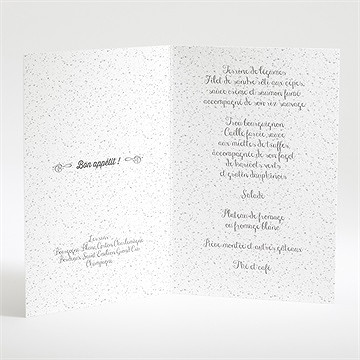 Bon appétit !
Les vins
Bourgogne Blanc Corton Charlemagne
Bordeaux Saint Emilion Grand Cru
Champagne
Terrine de légumes
Filet de sandre rôti aux cèpes,
sauce crème et saumon fumé
accompagné de son riz sauvage
Trou bourguignon
Caille farcie sauce
aux miettes de truffes,
accompagnée de son fagot
de haricots verts
et gratin dauphinois
Salade
Plateau de fromage
ou fromage blanc
Pièce montée et autres gâteaux
Thé et café